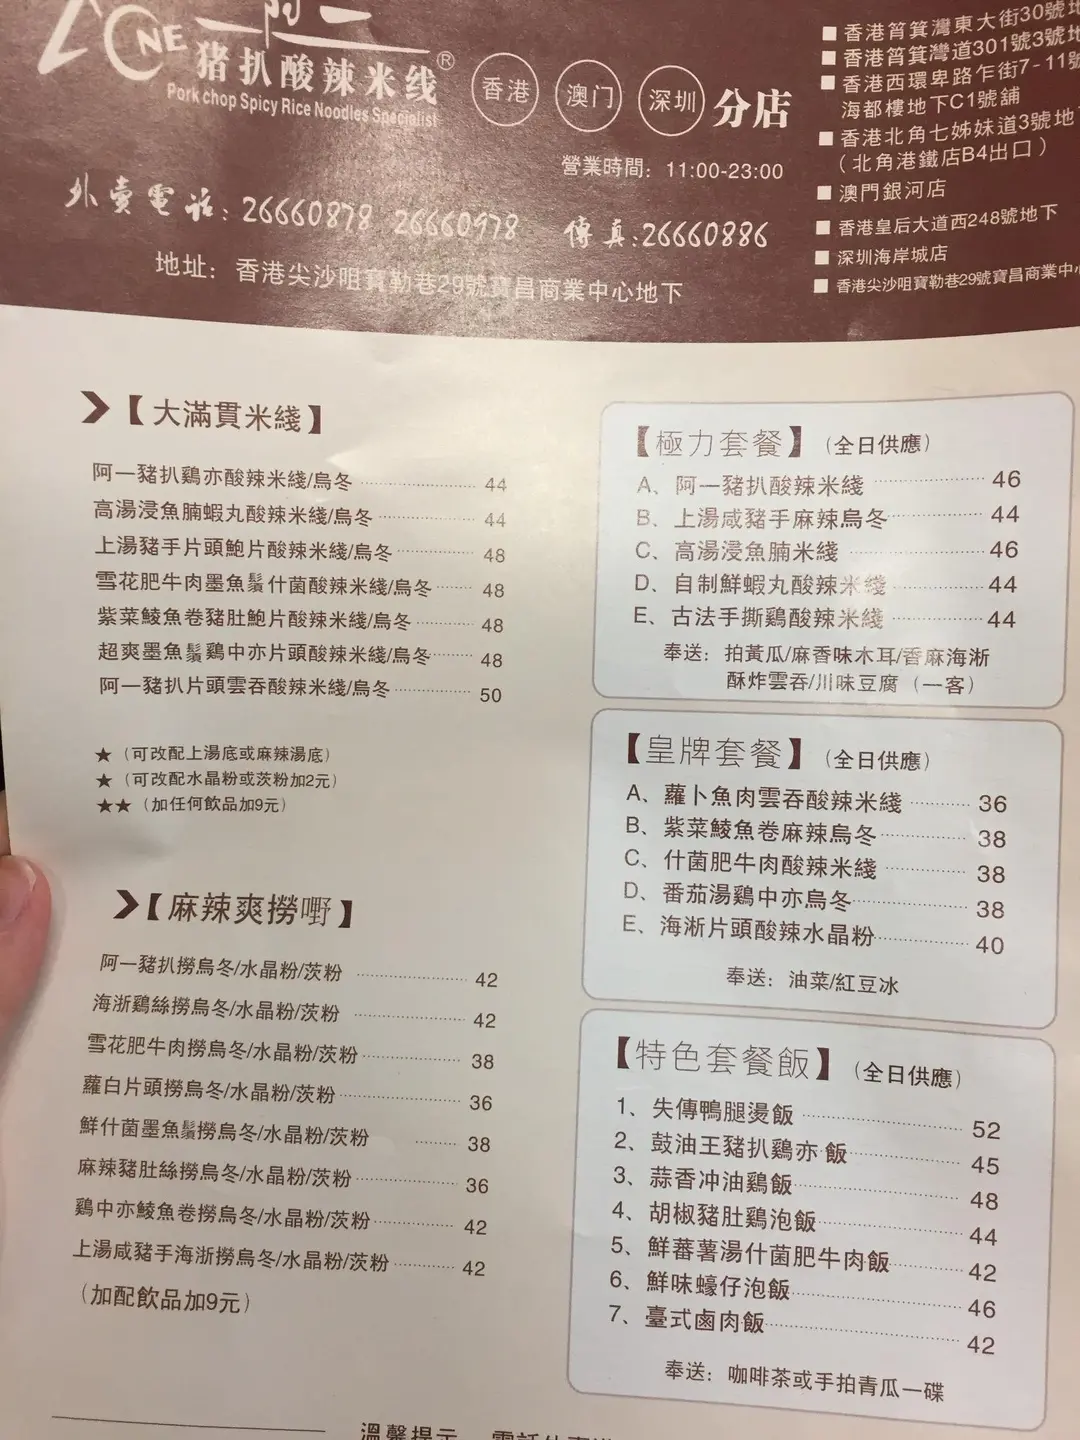 ONE
猪扒酸辣米线®
Pork chop Spicy Rice Noodles Specialist
香港 澳门 深圳 分店
營業時間：11:00-23:00
外賣電话：26660878 26660978 傳真:26660886
地址：香港尖沙咀寶勒巷29號寶昌商業中心地下
■ 香港筲箕灣東大街30號地
■ 香港筲箕灣道301號3號地
■ 香港西環卑路乍街7-11號
海都樓地下C1號舖
■ 香港北角七姊妹道3號地
（北角港鐵店B4出口）
■ 澳門銀河店
■ 香港皇后大道西248號地下
■ 深圳海岸城店
■ 香港尖沙咀寶勒巷29號寶昌商業中
【大滿貫米綫】
阿一豬扒鷄亦酸辣米綫/烏冬 44
高湯浸魚腩蝦丸酸辣米綫/烏冬 44
上湯豬手片頭鮑片酸辣米綫/烏冬 48
雪花肥牛肉墨魚鬚什菌酸辣米綫/烏冬 48
紫菜鯪魚卷豬肚鮑片酸辣米綫/烏冬 48
超爽墨魚鬚鷄中亦片頭酸辣米綫/烏冬 48
阿一豬扒片頭雲吞酸辣米綫/烏冬 50
★（可改配上湯底或麻辣湯底）
★（可改配水晶粉或茨粉加2元）
★★（加任何飲品加9元）
【麻辣爽撈嘢】
阿一豬扒撈烏冬/水晶粉/茨粉 42
海浙鷄絲撈烏冬/水晶粉/茨粉 42
雪花肥牛肉撈烏冬/水晶粉/茨粉 38
蘿白片頭撈烏冬/水晶粉/茨粉 36
鮮什菌墨魚鬚撈烏冬/水晶粉/茨粉 38
麻辣豬肚絲撈烏冬/水晶粉/茨粉 36
鷄中亦鯪魚卷撈烏冬/水晶粉/茨粉 42
上湯咸豬手海浙撈烏冬/水晶粉/茨粉 42
（加配飲品加9元）
【極力套餐】（全日供應）
A、阿一豬扒酸辣米綫 46
B、上湯咸豬手麻辣烏冬 44
C、高湯浸魚腩米綫 46
D、自制鮮蝦丸酸辣米綫 44
E、古法手撕鷄酸辣米綫 44
奉送：拍黃瓜/麻香味木耳/香麻海淅
酥炸雲吞/川味豆腐（一客）
【皇牌套餐】（全日供應）
A、蘿卜魚肉雲吞酸辣米綫 36
B、紫菜鯪魚卷麻辣烏冬 38
C、什菌肥牛肉酸辣米綫 38
D、番茄湯鷄中亦烏冬 38
E、海淅片頭酸辣水晶粉 40
奉送：油菜/紅豆冰
【特色套餐飯】（全日供應）
1、失傳鴨腿燙飯 52
2、鼓油王豬扒鷄亦飯 45
3、蒜香冲油鷄飯 48
4、胡椒豬肚鷄泡飯 44
5、鮮蕃薯湯什菌肥牛肉飯 42
6、鮮味蠔仔泡飯 46
7、臺式鹵肉飯 42
奉送：咖啡茶或手拍青瓜一碟
溫馨提示